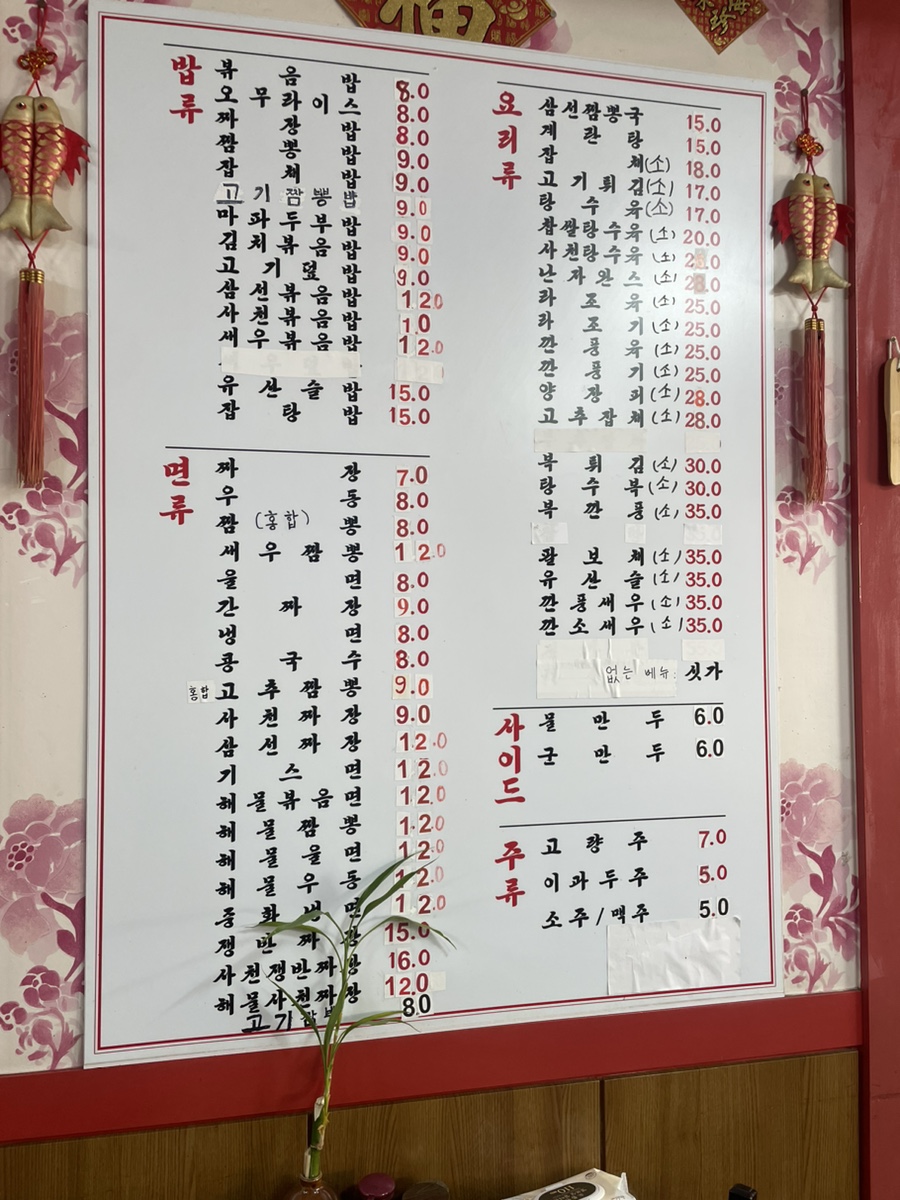 福
밥류
볶음밥 8.0
오무라이스 8.0
짜장밥 8.0
짬뽕밥 9.0
잡채밥 9.0
고기짬뽕밥 9.0
마파두부밥 9.0
김치볶음밥 9.0
고기덮밥 9.0
삼선볶음밥 12.0
사천볶음밥 10
새우볶음밥 12.0
유산슬밥 15.0
잡탕밥 15.0
면류
짜장 7.0
우동 8.0
짬(홍합)뽕 8.0
새우짬뽕 12.0
울면 8.0
간짜장 9.0
냉면 8.0
콩국수 8.0
홍합 고추짬뽕 9.0
사천짜장 9.0
삼선짜장 12.0
기스면 12.0
해물볶음면 12.0
해물짬뽕 12.0
해물울면 12.0
해물우동 12.0
중화냉면 12.0
쟁반짜장 15.0
사천쟁반짜장 16.0
해물사천짜장 12.0
고기 8.0
요리류
삼선짬뽕국 15.0
계란탕 15.0
잡채(소) 18.0
고기튀김(소) 17.0
탕수육(소) 17.0
찹쌀탕수육(소) 20.0
사천탕수육(소)
난자완스(소)
라조육(소) 25.0
라조기(소) 25.0
깐풍육(소) 25.0
깐풍기(소) 25.0
양장피(소) 28.0
고추잡채(소) 28.0
복튀김(소) 30.0
탕수복(소) 30.0
복깐풍(소) 35.0
팔보채(소) 35.0
유산슬(소) 35.0
깐풍새우(소) 35.0
깐소새우(소) 35.0
없는 메뉴: 싯가
사이드
물만두 6.0
군만두 6.0
주류
고량주 7.0
이과두주 5.0
소주/맥주 5.0